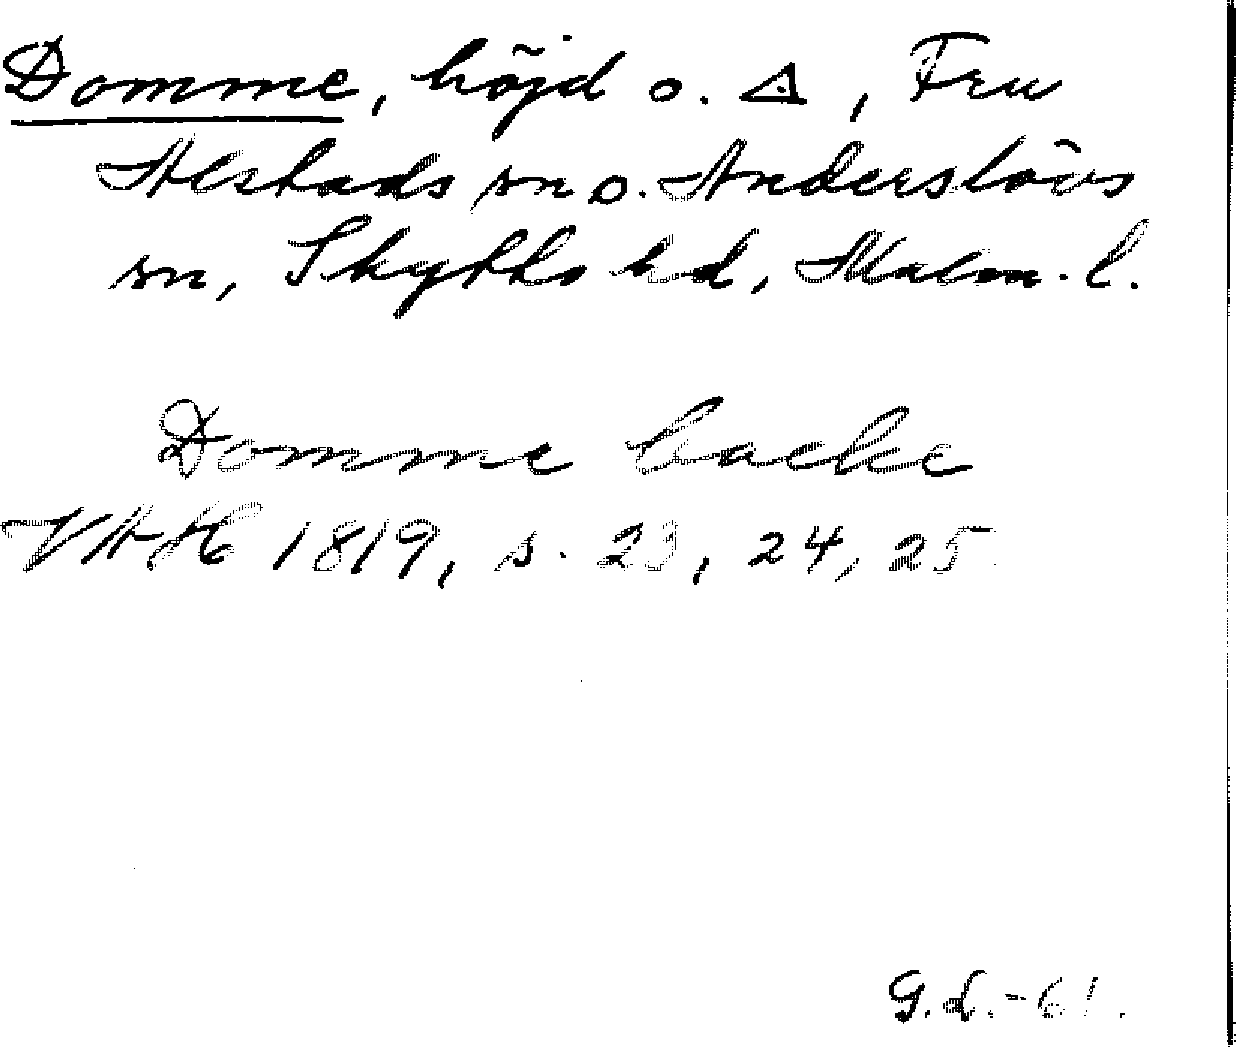 Domme, höjd o. △, Fru
Alstads sn o. Anderslövs
sn, Skytts hd, Malm. l.
Domme backe
VAH 1819, s. 23, 24, 25
G.L.-61.